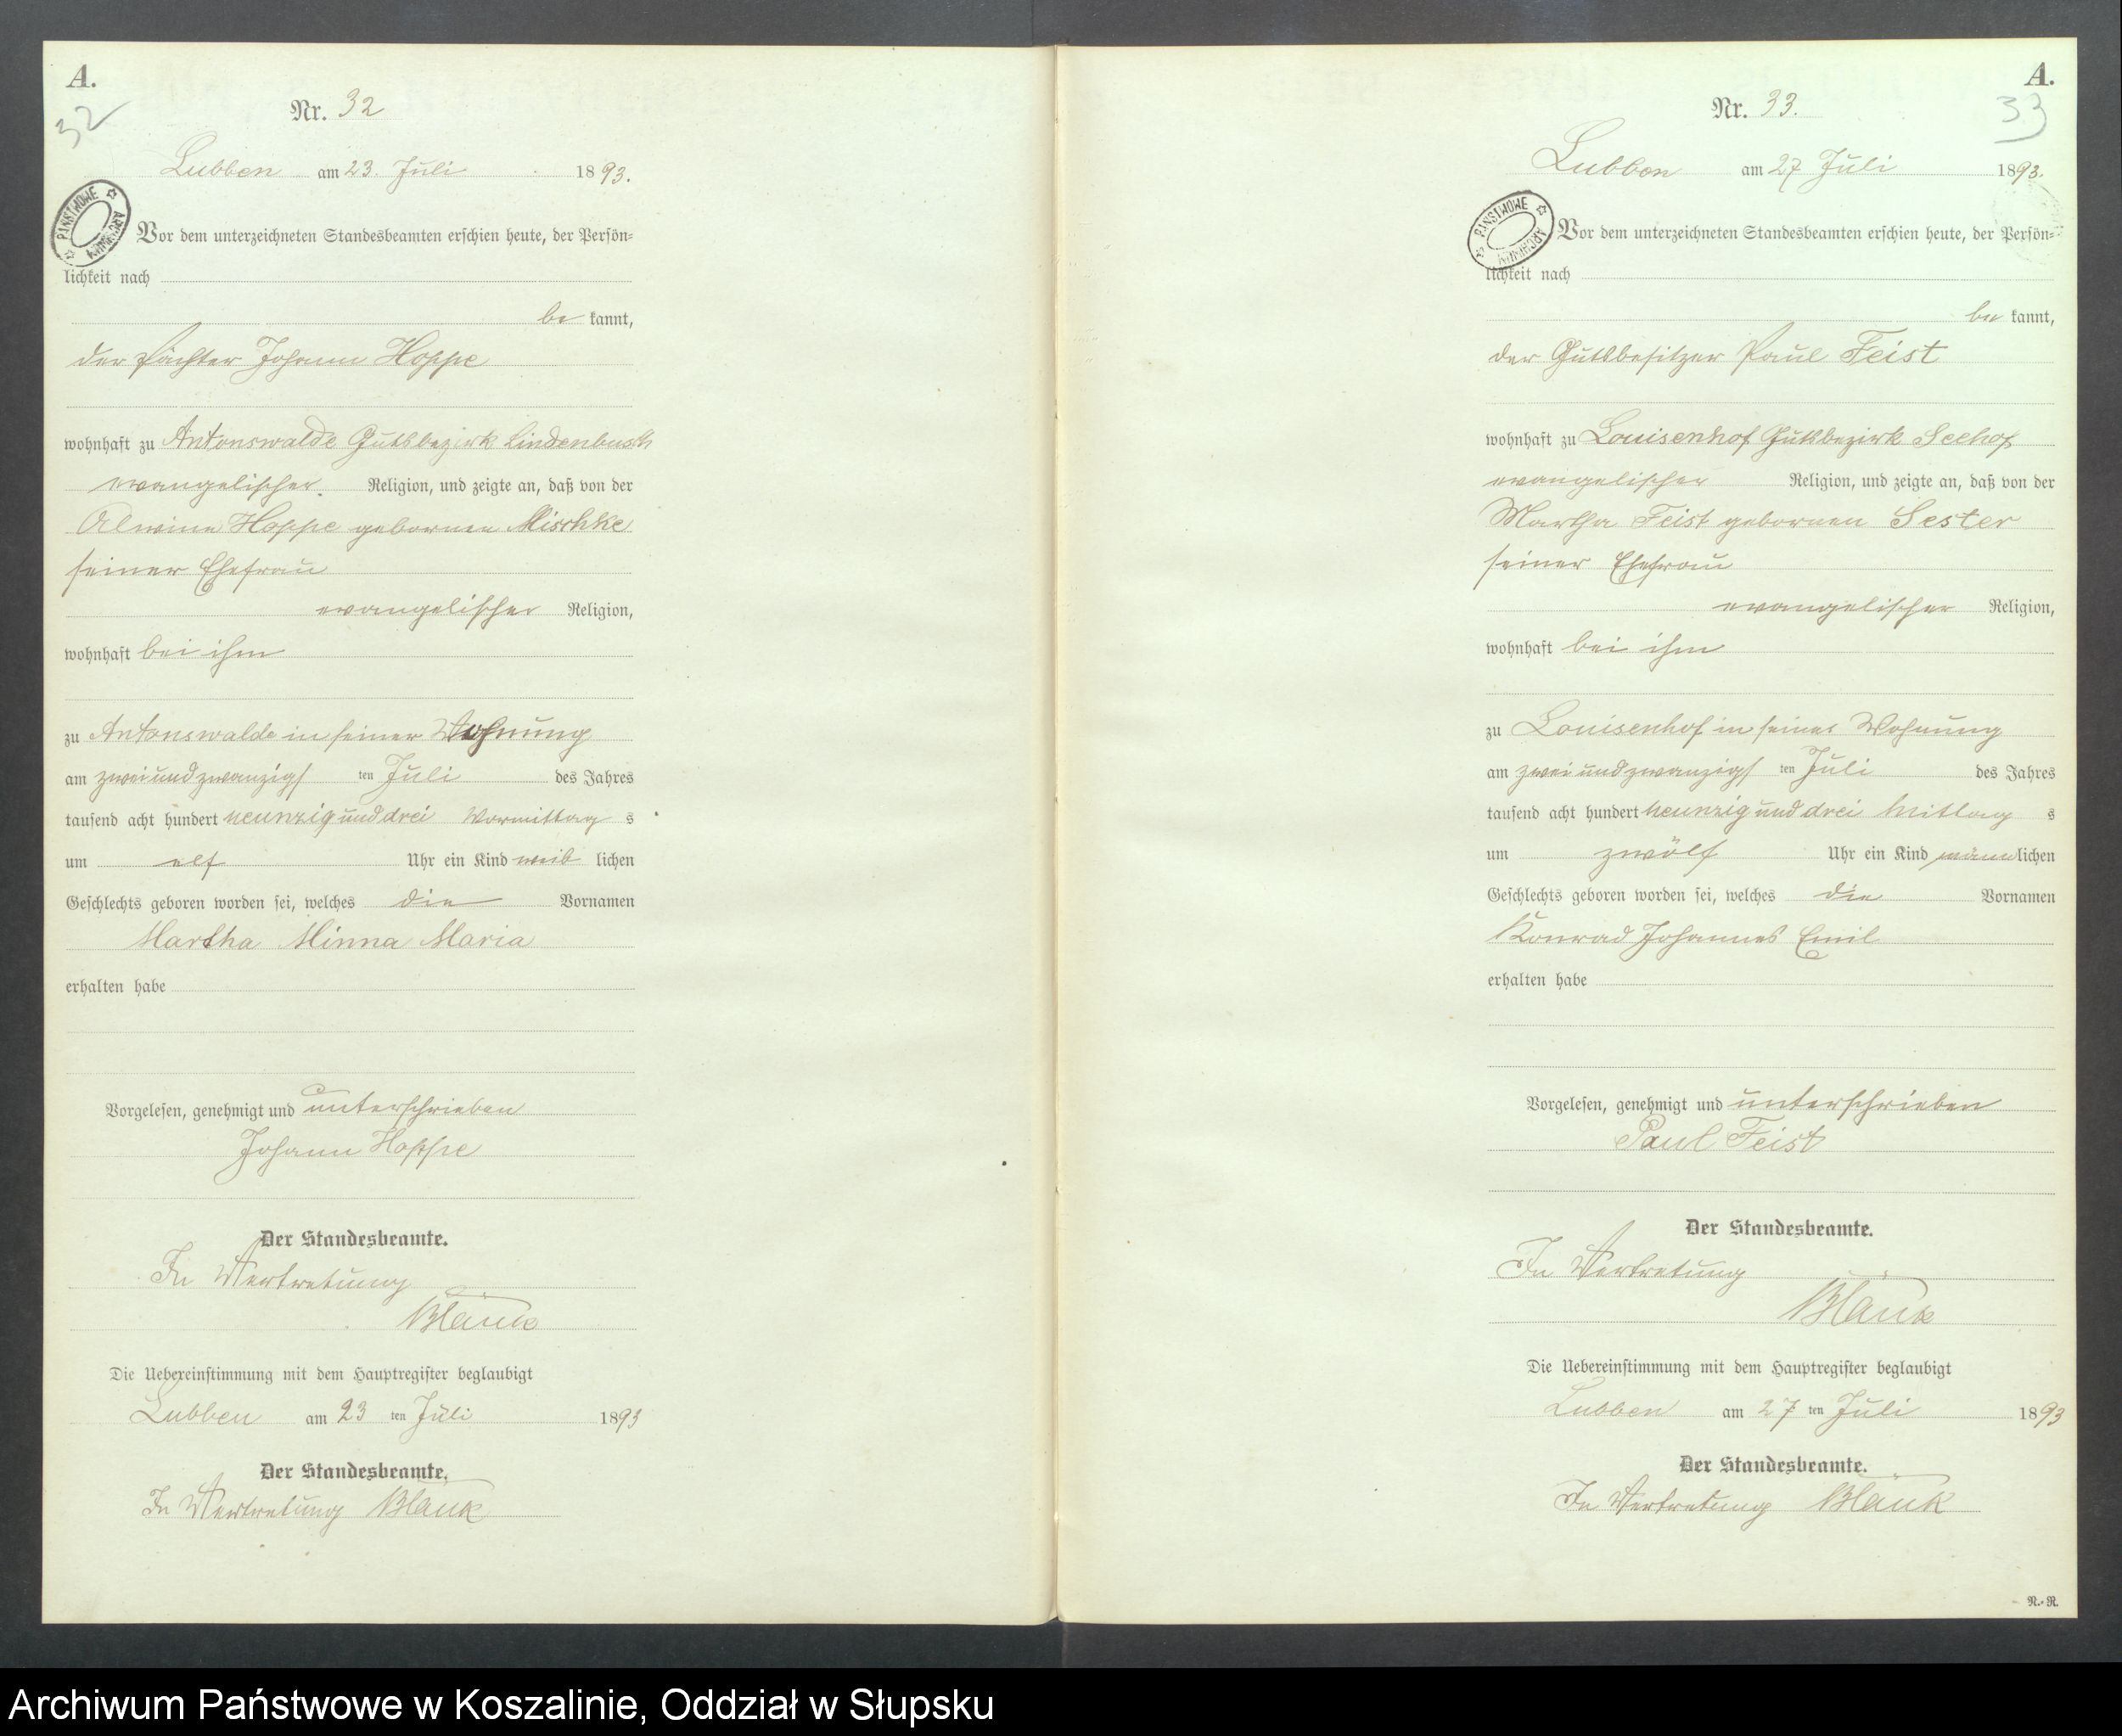 A.
32
Nr. 32
Lubben am 23. Juli 1893.
PANSTWOWE ARCHIWUM
Vor dem unterzeichneten Standesbeamten erschien heute, der Persön=
lichkeit nach
be kannt,
der Pächter Johann Hoppe
wohnhaft zu Antonswalde Gutsbezirk Lindenbusch
evangelischer Religion, und zeigte an, daß von der
Alwine Hoppe gebornen Mischke
seiner Ehefrau
evangelischer Religion,
wohnhaft bei ihm
zu Antonswalde in seiner Wohnung
am zweiundzwanzigs ten Juli des Jahres
tausend acht hundert neunzig und drei Vormittag s
um elf Uhr ein Kind weib lichen
Geschlechts geboren worden sei, welches die Vornamen
Martha Minna Maria
erhalten habe
Vorgelesen, genehmigt und unterschrieben
Johann Hoppe
Der Standesbeamte.
In Vertretung
Die Uebereinstimmung mit dem Hauptregister beglaubigt
Lubben am 23 ten Juli 1893
Der Standesbeamte.
In Vertretung
A.
33
Nr. 33.
Lubben am 27 Juli 1893.
PANSTWOWE ARCHIWUM
Vor dem unterzeichneten Standesbeamten erschien heute, der Persön=
lichkeit nach
be kannt,
der Gutsbesitzer Paul Feist
wohnhaft zu Louisenhof Gutsbezirk Seehof
evangelischer Religion, und zeigte an, daß von der
Martha Feist gebornen Sester
seiner Ehefrau
evangelischer Religion,
wohnhaft bei ihm
zu Louisenhof in seiner Wohnung
am zweiundzwanzigs ten Juli des Jahres
tausend acht hundert neunzig und drei Mittag s
um zwölf Uhr ein Kind männlichen
Geschlechts geboren worden sei, welches die Vornamen
Konrad Johannes Emil
erhalten habe
Vorgelesen, genehmigt und unterschrieben
Paul Feist
Der Standesbeamte.
In Vertretung
Die Uebereinstimmung mit dem Hauptregister beglaubigt
Lubben am 27 ten Juli 1893
Der Standesbeamte.
In Vertretung
N.-R.
Archiwum Państwowe w Koszalinie, Oddział w Słupsku